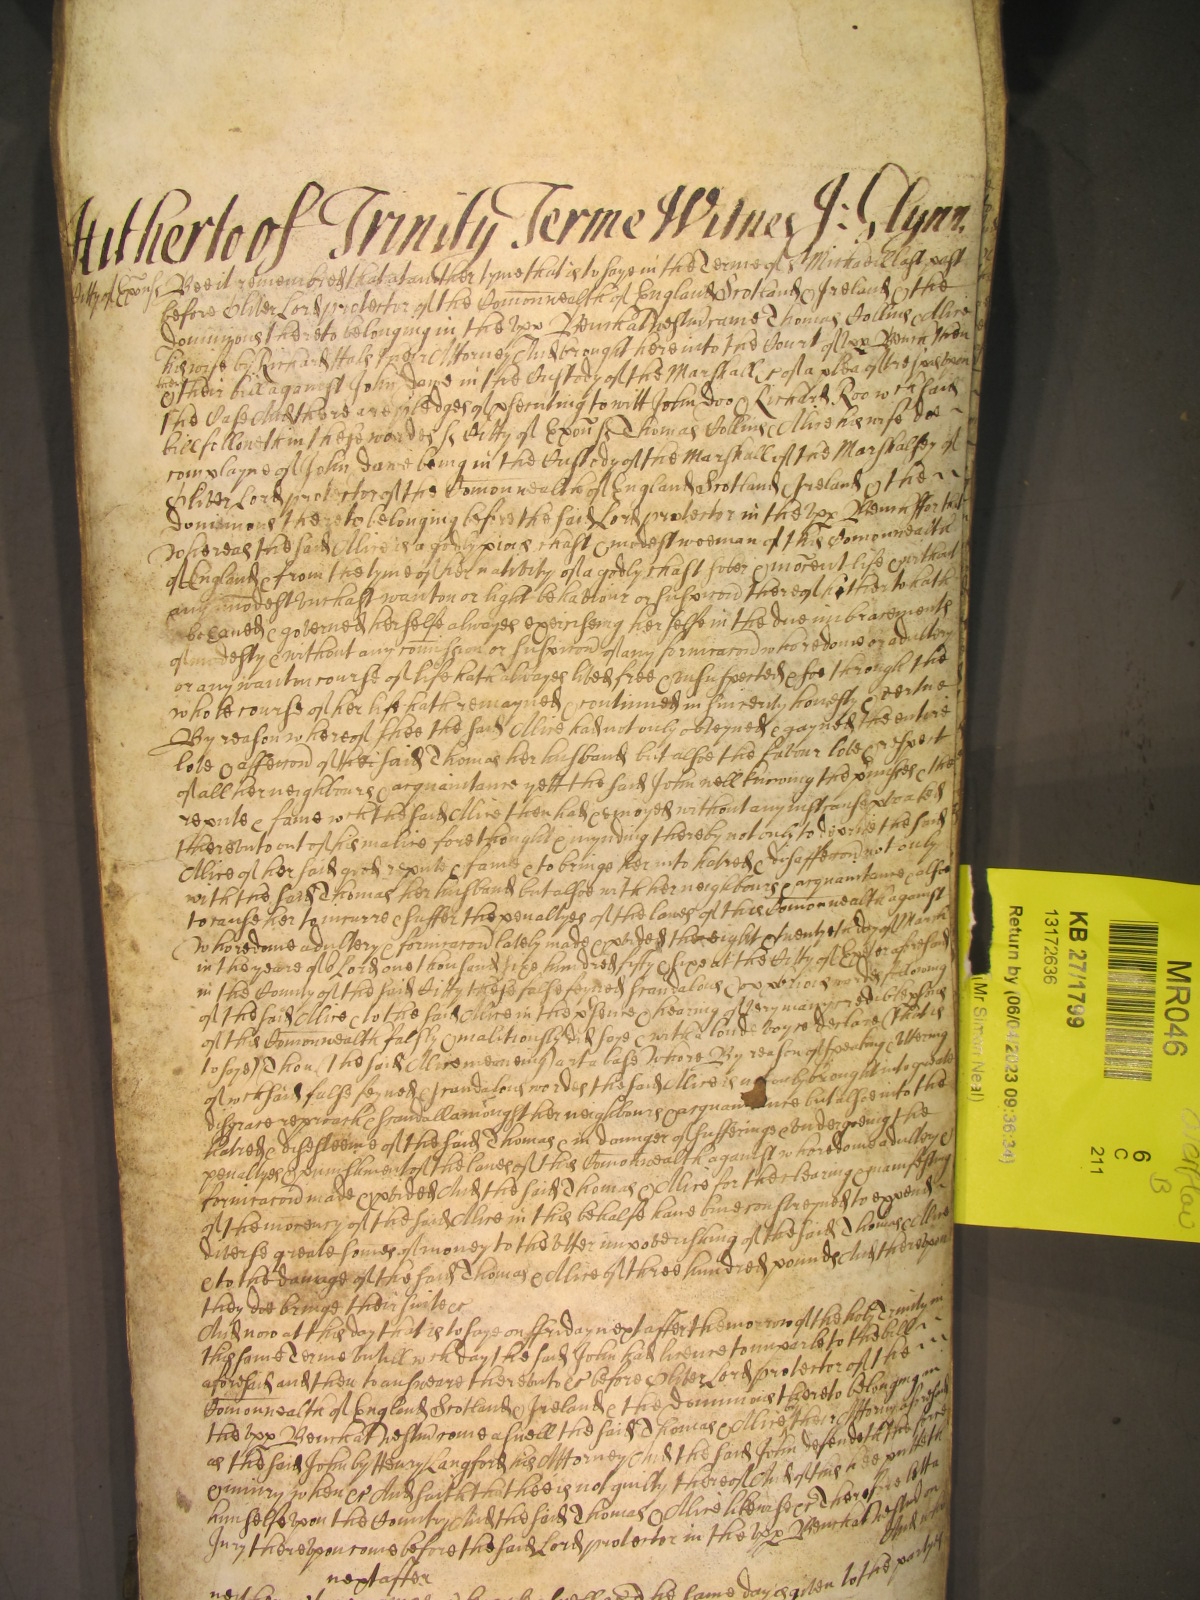 Hitherto of Trinity Terme Witnes J: Glynn.
Citty of Exon ss Bee it remembred that at another tyme that is to saye in the Terme of St Michaell last past
before Oliver Lord protector of the Comonwealth of England Scotland & Ireland & the
dominions thereto belonging in the upp Bench at Westmr came Thomas Collins & Alice
his wife by Richard Hals their Attorney And brought here into the Court of upp Bench then
there their bill against John Dawe in the Custody of the Marshall &c of a plea of trespas upon
the Case And there are pledges of psecuting to witt John Doo & Richard Roo wch said
bill followeth in these wordes ss Citty of Exon ss Thomas Collins & Alice his wife doe
complayne of John Dawe being in the Custody of the Marshall of the Marshalsey of
Oliver Lord protector of the Comonwealth of England Scotland & Ireland & the
dominions thereto belonging before the said Lord protector in the upp Bench ffor that
whereas the said Alice is a godly pious chast & modest woeman of this Comonwealth
of England & from the tyme of her nativity of a godly chast sober & inocent life & without
any imodest unchast wanton or light behaviour or suspicon thereof hitherto hath
behaved & governed herselfe alwayes exercising her selfe in the due imbracements
of modesty & without any comission or suspicon of any fornicacon whoredome or adultery
or any wanton course of life hath alwayes lived free & unsuspected & soe through the
whole course of her life hath remayned & continued in sincerity honesty & vertue
By reason whereof shee the said Alice had not only obteyned & gayned the entire
love & affeccon of the said Thomas her husband but alsoe the favour love & respect
of all her neighbours & acquaintance yett the said John well knowing the pmisses & the
repute & fame wch the said Alice then had & enioyed without any iust cause pvoaked
thereunto out of his malice forethought & mynding thereby not only to deprive the said
Alice of her said good repute & fame & to bringe her into hatred & disaffeccon not only
with the said Thomas her husband but alsoe with her neighbours & acquaintance & alsoe
to cause her to incurre & suffer the penaltyes of the lawes of this Comonwealth against
whoredome adultery & fornicacon lately made & pvided the eight & twentieth day of March
in the yeare of or Lord one thousand six hundred fifty & six at the Citty of Exeter aforesaid
in the County of the said Citty these false feyned scandalous & opprious words following
of the said Alice & to the said Alice in the psence & hearing of very many credible psons
of this Comonwealth falsly & malitiously did saye & with a loude voyce declare (That is
to saye) Thou (the said Alice meaneing) art a base whore By reason of speaking & uttering
of wch said false feyned & scandalous wordes the said Alice is not only brought into greate
disgrace reproach & scandall amongst her neighbours & acquaintance but alsoe into the
hatred & disesteeme of the said Thomas & in daunger of suffering & undergoeing the
penaltyes & punishments of the lawes of this Comonwealth against whoredome adultery &
fornicacon made & pvided And the said Thomas & Alice for the clearing & manifesting
of the inocency of the said Alice in this behalfe have bine constreyned to expend
diverse greate somes of money to the utter impoverishing of the said Thomas & Alice
& to the damage of the said Thomas & Alice of three hundred pounds And thereupon
they doe bringe their suite &c
And now at this day that is to saye on ffriday next after the morrow of the holy Trinity in
this same Terme untill wch day the said John had licence to imparle to the bill
aforesaid and then to answeare thereunto &c before Oliver Lord protector of the
Comonwealth of England Scotland & Ireland & the dominions thereto belonging in
the upp Bench at Westmr come aswell the said Thomas & Alice by their Attorney aforesaid
as the said John by Henry Langford his Attorney And the said John defendeth the force
& iniury when &c And saith that hee is not guilty thereof And of this hee putteth
himselfe upon the Country And the said Thomas & Alice likewise &c Therefore lett a
Jury thereupon come before the said Lord protector in the upp Bench at Westmr on
next after And
the same day is given to the partyes
MR046
KB 271/799
13172636
Return by (06/04/2023 09:36:34)
(Mr Simon Neal)
6
C
211
B